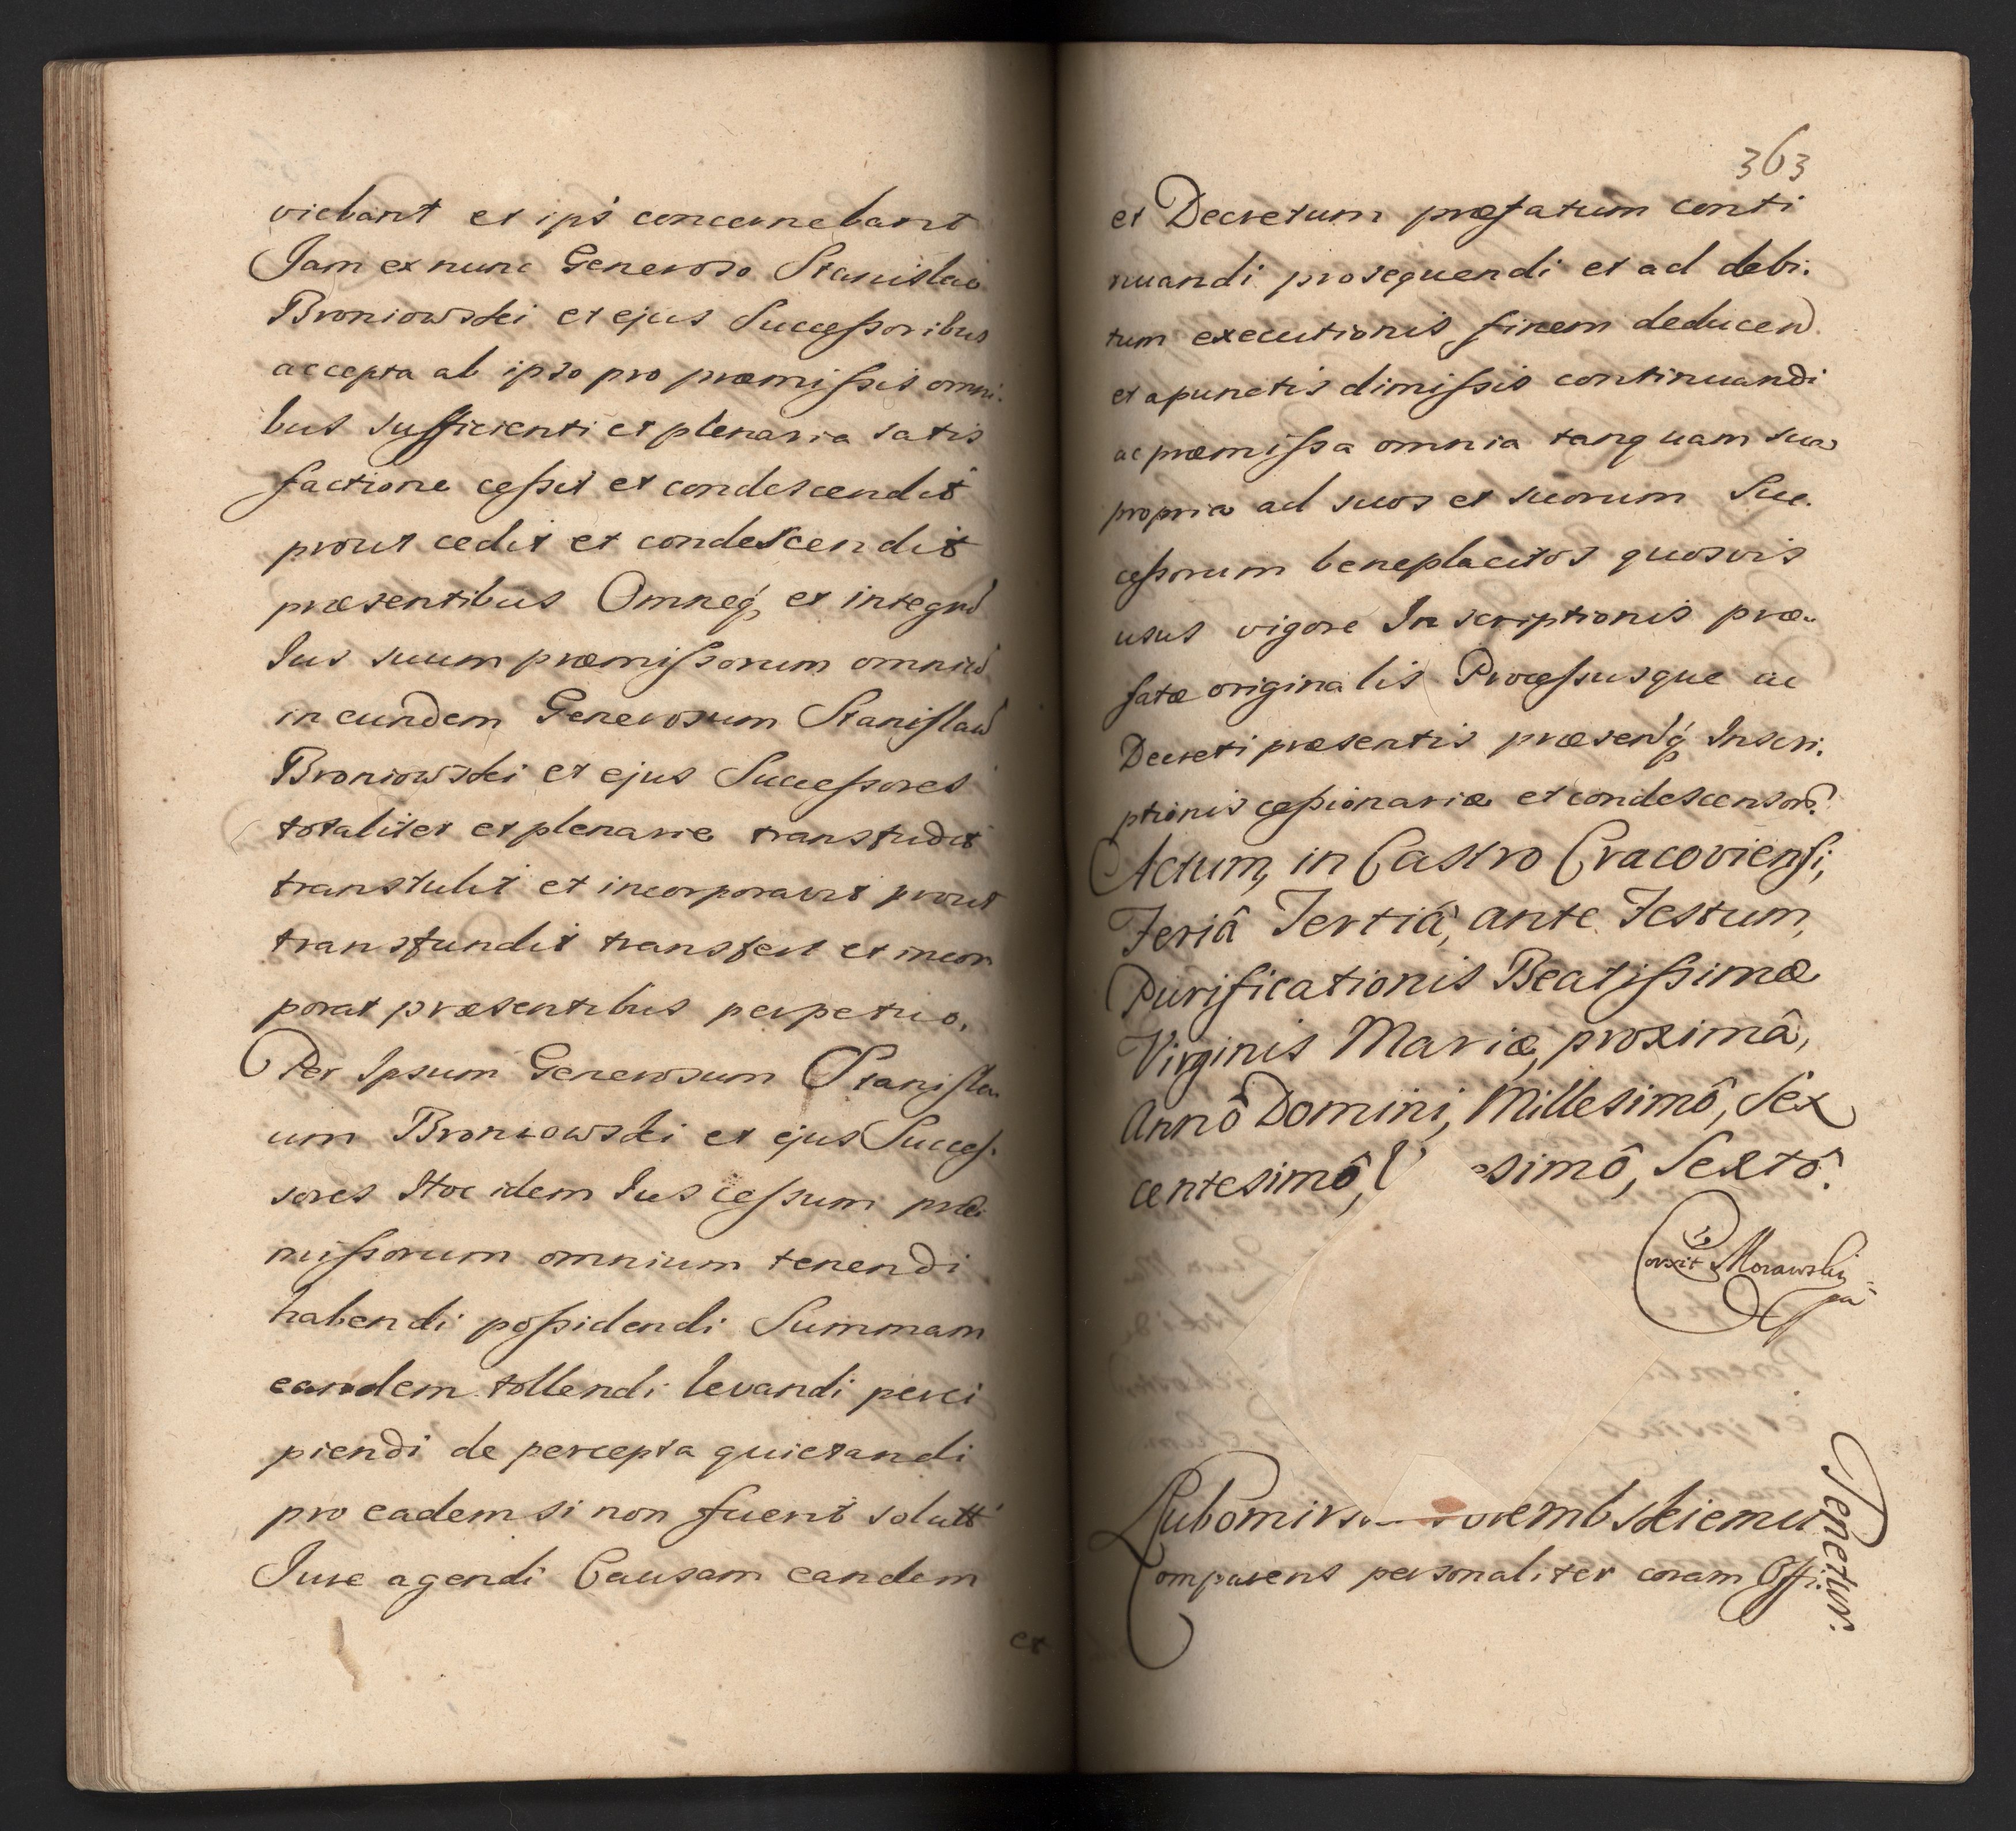 viebant et ips concernebant
Jam ex nunc Generoso Stanislao
Broniowski et ejus Successoribus
accepta ab ipso pro præmissis omni.
bus sufficienti et plenaria satis
factione cessit et condescendit
prout cedit et condescendit
præsentibus Omneq; et integrũ
Jus suum præmissorum omniũ
in eundem Generosum Stanislaũ
Broniowski et ejus Successores
totaliter et plenarie transfudit
transtulit et incorporavit prout
transfundit transfert et incor
porat præsentibus perpetuo.
Per Ipsum Generosum Stanisla
um Broniowski et ejus Succes.
sores Hoc idem Jus cessum præ
missorum omnium tenendi
habendi possidendi Summam
eandem tollendi levandi perci
piendi de percepta quietandi
pro eadem si non fuerit solutt
Jure agendi Causam eandem
et
363
et Decretum præfatum conti
nuandi prosequendi et ad debi.
tum executionis finem deducen
et a punctis dimissis continuandi
ac præmissa omnia tanquam sua
propria ad suos et suorum Suc.
cessorum beneplacitos quosvis
usus vigore Inscriptionis præ
fatæ originalis Processusque ac
Decreti præsentis præsen'q; Inscri.
ptionis cessionariæ et condescensor.
Actum, in Castro Cracoviensi,
Feriâ Tertiâ, ante Festum,
Purificationis Beatissimæ
Virginis Mariæ, proximâ,
Annô Domini, Millesimô, Sex
centesimô, simô, Sextô.
Corxit Morawsky
pa
Tenetur.
Lubomirs embskiemu
Comparens personaliter coram Offi.